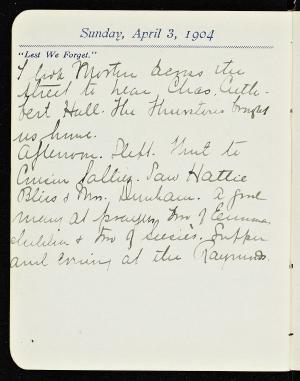 Sunday, April 3, 1904
"Lest We Forget."
I took Mother across the
street to hear Chas. Cuth-
bert Hall. The Thurstons brought
us home.
Afternoon. Slept. Went to
Saw Hattie
Bliss & Mrs. Dunham. A good
many at two of Emmas
children & two of Susie's. Supper
and evening at the Raymonds.